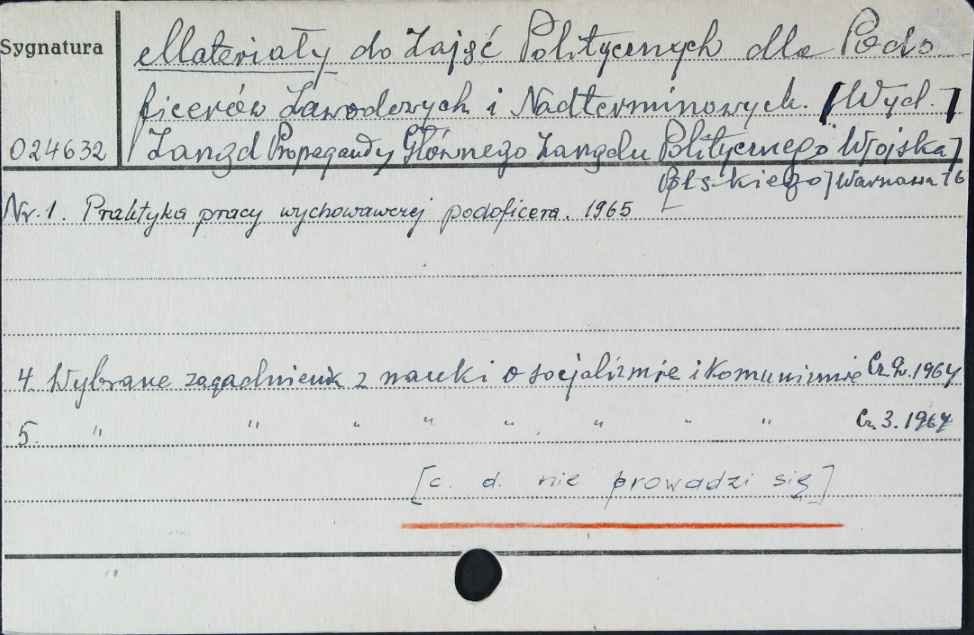 Sygnatura
Materiały do Zajęć Politycznych dla Podo
ficerów Zawodowych i Nadterminowych. [Wyd.]
024632 Zarząd Propagandy Głównego Zarządu Politycznego Wojska]
[Polskiego] Warszawa 76
Nr. 1. Praktyka pracy wychowawczej podoficera. 1965
4. Wybrane zagadnienia z nauki o socjaliźmie i Komuniźmie Cz. 2. 1967
5. " " " " " " " " Cz. 3. 1967
[c. d. nie prowadzi się]